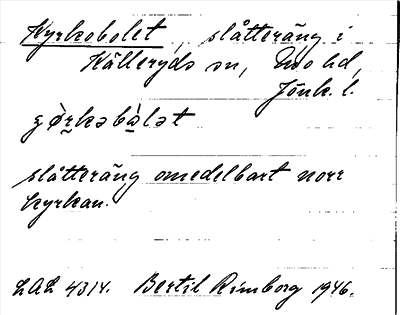 Kyrkobolet, slåtteräng i
Kålleryds sn, Mo hd,
Jönk. l.
slåtteräng omedelbart norr
kyrkan.
LAL 4314. Bertil Rimborg 1946.